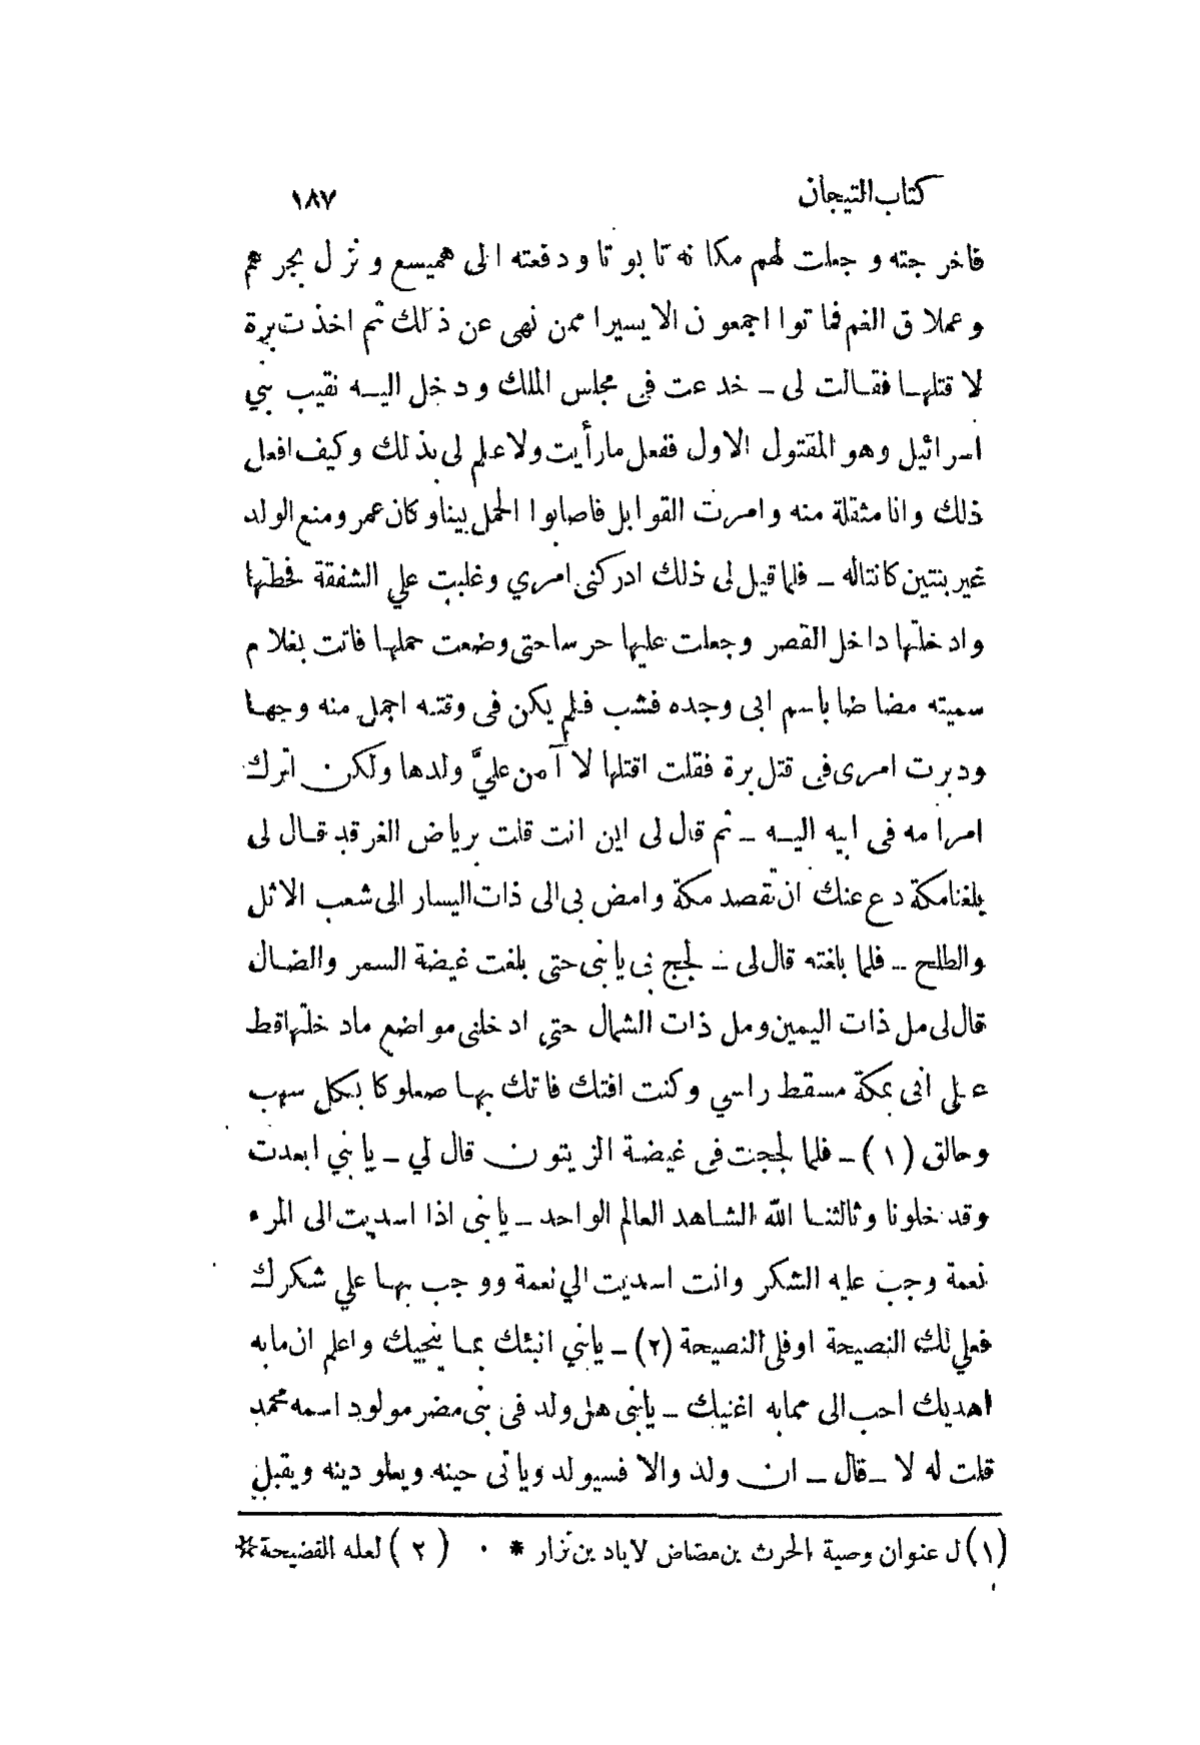 كتاب التيجان ١٨٧
فاخرجته وجعلت لهم مكانه تابوتا ودفعته الى هميسع ونزل بجرهم
وعملاق الغم فماتوا اجمعون الا يسيرا ممن نهى عن ذلك ثم اخذت برة
لاقتلها فقالت لى ـ خدعت فى مجلس الملك ودخل اليه نقيب بني
اسرائيل وهو المقتول الاول ففعل مارأيت ولا علم لى بذلك وكيف افعل
ذلك وانا مثقلة منه وامرت القوابل فاصابوا الحمل بينا وكان عمر ومنع الولد
غير بنتين كانتاله ـ فلما قيل لى ذلك ادركنى امري وغلبت علي الشفقة فحطتها
وادخلتها داخل القصر وجعلت عليها حرسا حتى وضعت حملها فاتت بغلام
سميته مضاضا باسم ابى وجده فشب فلم يكن فى وقته اجمل منه وجها
ودبرت امرى فى قتل برة فقلت اقتلها لا آمن عليَّ ولدها ولكن اترك
امر امه فى ابيه اليه ـ ثم قال لى اين انت قلت برياض الغرقد قال لى
بلغنا مكة دع عنك ان تقصد مكة وامض بى الى ذات اليسار الى شعب الاثل
والطلح ـ فلما بلغته قال لى ـ لجج بى يابنى حتى بلغت غيضة السمر والضال
قال لى مل ذات اليمين ومل ذات الشمال حتى ادخلنى مواضع مادخلتها قط
على انى بمكة مسقط راسي وكنت افتك فاتك بها صعلوكا بكل سهب
وحالق (١) ـ فلما لججت فى غيضة الزيتون قال لي ـ يابني ابعدت
وقد خلونا وثالثنا الله الشاهد العالم الواحد ـ يابنى اذا اسديت الى المرء
نعمة وجب عليه الشكر وانت اسديت الي نعمة ووجب بها علي شكرك
فعلي لك النصيحة اوفلى النصيحة (٢) ـ يابني انبئك بما ينجيك واعلم ان مابه
اهديك احب الى ممابه اغنيك ـ يابنى هل ولد فى بنى مضر مولود اسمه محمد
قلت له لا ـ قال ـ ان ولد والا فسيولد وياتى حينه ويعلو دينه ويقبل
(١) ل عنوان وصية الحرث بن مضاض لاياد بن نزار * . (٢) لعله الفضيحة *